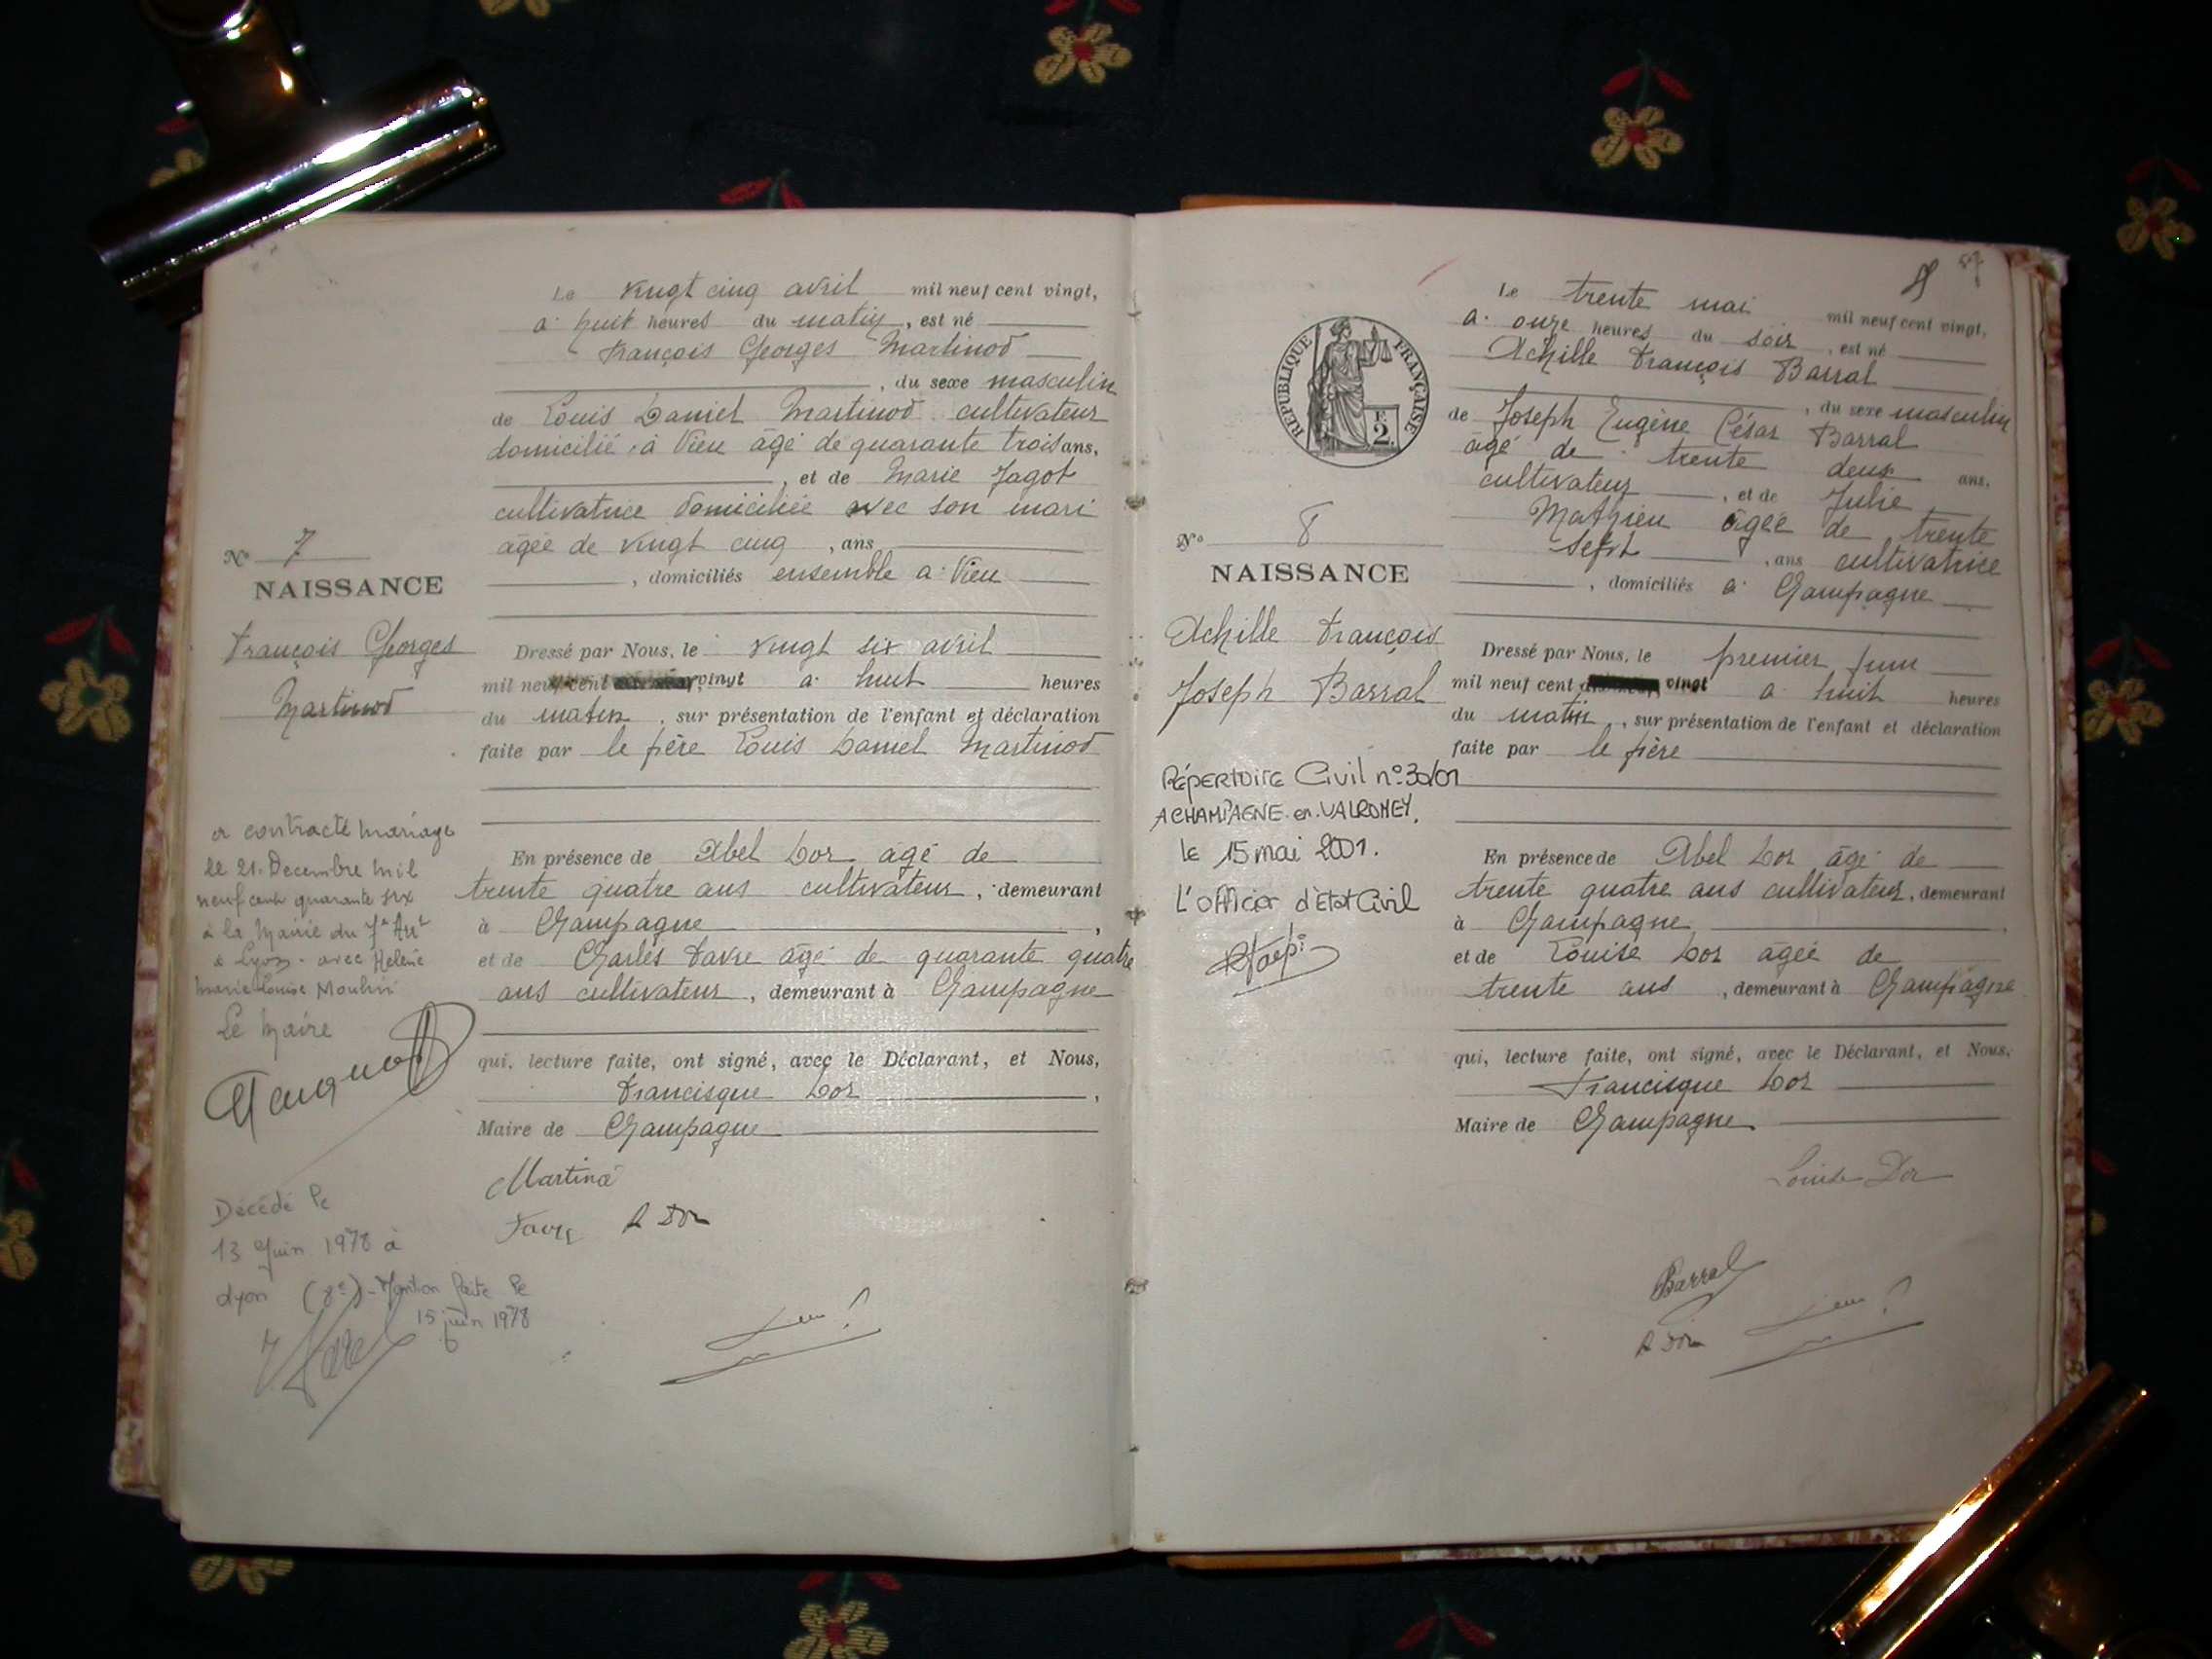 Le vingt cinq avril mil neuf cent vingt,
a huit heures du matin, est né
François Georges Martinod
, du sexe masculin
de Louis Daniel Martinod cultivateur
domicilié à Vieu âgé de quarante trois ans,
, et de Marie Jagot
cultivatrice domiciliée avec son mari
âgée de vingt cinq , ans
, domiciliés ensemble a Vieu
N° 7
NAISSANCE
François Georges
Martinod
Dressé par Nous, le vingt six avril
mil neuf cent vingt a huit heures
du matin , sur présentation de l'enfant et déclaration
faite par le père Louis Daniel Martinod
a contracté mariage
le 21. Decembre mil
neuf cent quarante six
à la Mairie du 7e Arrt
à Lyon - avec Hélène
Marie Louise Moulin
Le Maire
En présence de Abel Dor agé de
trente quatre ans cultivateur, demeurant
à Champagne ,
et de Charles Favre âgé de quarante quatre
ans cultivateur , demeurant à Champagne
qui, lecture faite, ont signé, avec le Déclarant, et Nous,
Francisque Dor ,
Maire de Champagne
Martinod
Favre A Dor
Décédé le
13 Juin 1978 à
Lyon (8e) - Mention faite le
15 juin 1978
8
RÉPUBLIQUE FRANÇAISE
2
Le trente mai mil neuf cent vingt,
a onze heures du soir , est né
Achille François Barral
, du sexe masculin
de Joseph Eugène César Barral
âgé de trente deux ans,
cultivateur , et de Julie
Mathieu âgée de trente
sept , ans cultivatrice
, domiciliés a Champagne
N° 8
NAISSANCE
Achille François
Joseph Barral
Dressé par Nous, le premier Juin
mil neuf cent vingt a huit heures
du matin , sur présentation de l'enfant et déclaration
faite par le père
RÉPERTOIRE Civil n° 30/01
A CHAMPAGNE en VALROMEY.
le 15 mai 2001.
L'officier d'Etat Civil
En présence de Abel Dor âgé de
trente quatre ans cultivateur, demeurant
à Champagne ,
et de Louise Dor agée de
trente ans , demeurant à Champagne
qui, lecture faite, ont signé, avec le Déclarant, et Nous,
Francisque Dor
Maire de Champagne
Louise Dor
Barral
A Dor